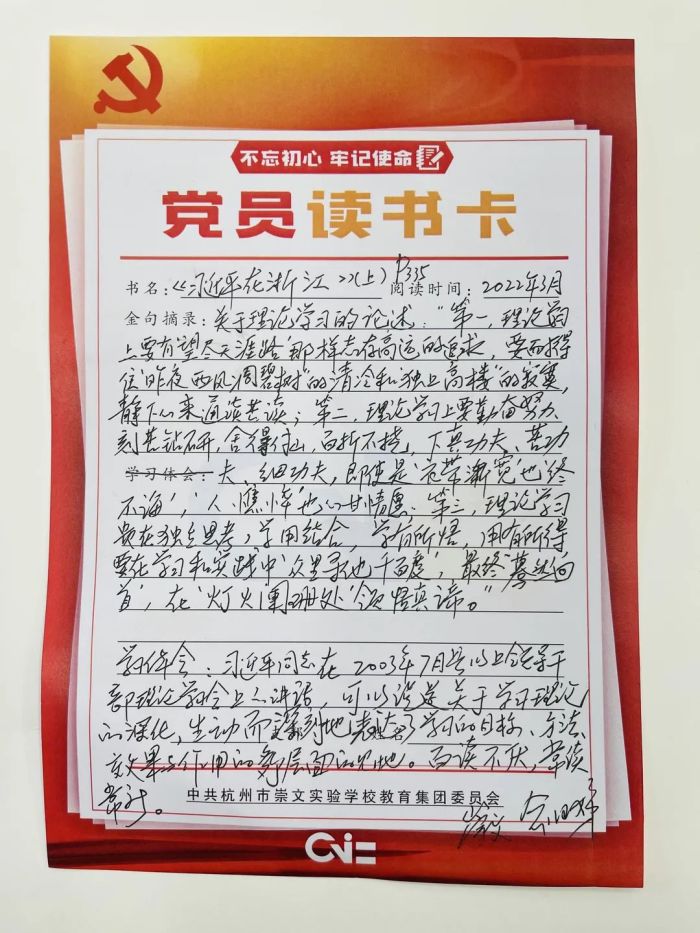 不忘初心 牢记使命
党员读书卡
书名：《习近平在浙江》(上) P335 阅读时间：2022年3月
金句摘录：关于理论学习的论述："第一，理论学习
上要有'望尽天涯路'那样志存高远的追求，要耐得
住'昨夜西风凋碧树'的清冷和'独上高楼'的寂寞，
静下心来通读苦读；第二，理论学习上要勤奋努力、
刻苦钻研，舍得付出，百折不挠，下真功夫、苦功
学习体会：夫、细功夫，即使是'衣带渐宽'也'终
不悔'，'人憔悴'也心甘情愿；第三，理论学习
贵在独立思考，学用结合，学有所悟，用有所得
要在学习和实践中'众里寻他千百度'，最终'蓦然回
首'，在'灯火阑珊处'领悟真谛。"
学习体会：习近平同志在2003年7月县以上领导干
部理论学习会上的讲话，可以说是关于学习理论
的深化，生动而深刻地表达了学习的目标、方法、
效果与作用的多层面的见地。百读不厌，常读
常新。
中共杭州市崇文实验学校教育集团委员会
崇文